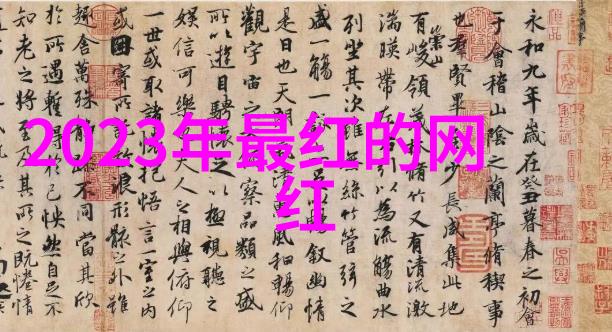 2023年最红的网
红
永和九年歲在癸丑暮春之初會
于會稽山陰之蘭亭脩稧事
也群賢畢少長咸集此地
有崇山峻領茂脩竹又有清流激
湍暎帶左引以為流觴曲水
列坐其次雖無絲竹管弦之
盛一觴一以暢敘幽情
是日也天朗風和暢仰
觀宇宙之察品類之盛
所以遊目騁懷以極視聽之
娛信可樂夫人之相與俯仰
一世或取諸抱悟言一室之內
或因寄所浪形骸之外雖
趣舍萬殊不同當其欣
於所遇暫得己怏然自足不
知老之將至及其所之既惓情